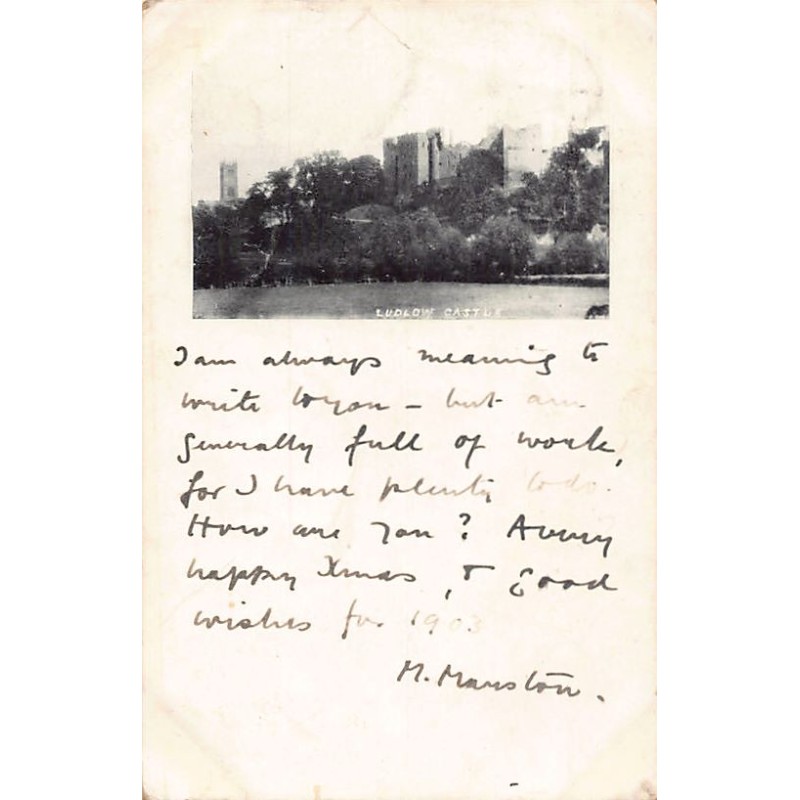 LUDLOW CASTLE
I am always meaning to
write to you – but am
generally full of work,
for I have plenty to do.
How are you? A very
happy Xmas, & good
wishes for 1903
M. Marston.